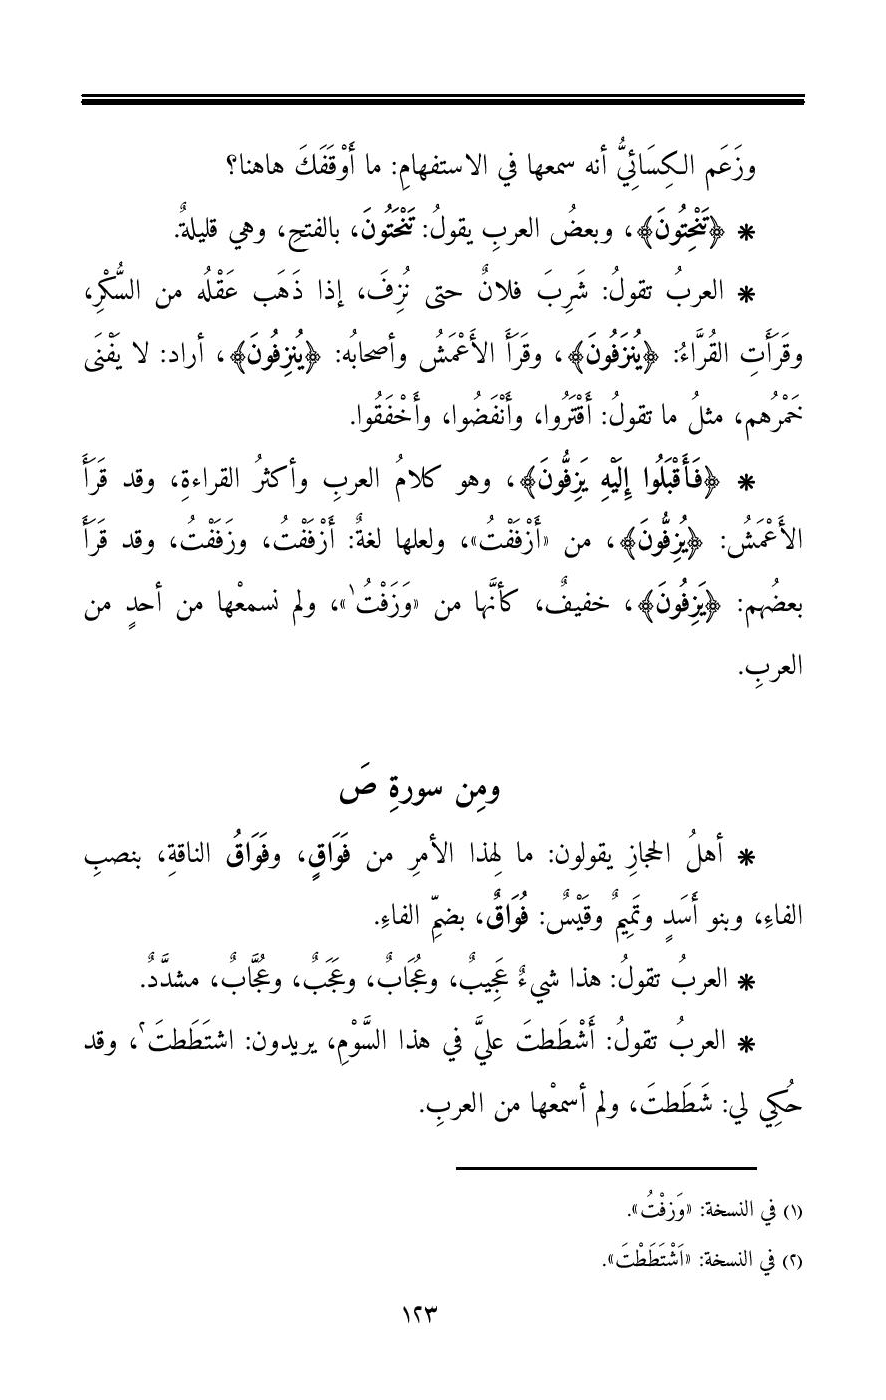 وزَعَم الكِسَائِيُّ أنه سمعها في الاستفهامِ: ما أَوْقَفَكَ هاهنا؟
* ﴿تَنْحِتُونَ﴾، وبعضُ العربِ يقولُ: تَنْحَتُونَ، بالفتحِ، وهي قليلةٌ.
* العربُ تقولُ: شَرِبَ فلانٌ حتى نُزِفَ، إذا ذَهَب عَقْلُه من السُّكْرِ،
وقَرَأَتِ القُرَّاءُ: ﴿يُنزَفُونَ﴾، وقَرَأَ الأَعْمَشُ وأصحابُه: ﴿يُنزِفُونَ﴾، أراد: لا يَفْنَى
خَمْرُهم، مثلُ ما تقولُ: أَقْتَرُوا، وأَنْفَضُوا، وأَخْفَقُوا.
* ﴿فَأَقْبَلُوا إِلَيْهِ يَزِفُّونَ﴾، وهو كلامُ العربِ وأكثرُ القراءةِ، وقد قَرَأَ
الأَعْمَشُ: ﴿يُزِفُّونَ﴾، من «أَزْفَفْتُ»، ولعلها لغةٌ: أَزْفَفْتُ، وزَفَفْتُ، وقد قَرَأَ
بعضُهم: ﴿يَزِفُونَ﴾، خفيفٌ، كأنَّها من «وَزَفْتُ١»، ولم نسمعْها من أحدٍ من
العربِ.
ومِن سورةِ صَ
* أهلُ الحجازِ يقولون: ما لِهذا الأمرِ من فَوَاقٍ، وفَوَاقُ الناقةِ، بنصبِ
الفاءِ، وبنو أَسَدٍ وتَمِيمٌ وقَيْسٌ: فُوَاقٌ، بضمِّ الفاءِ.
* العربُ تقولُ: هذا شيءٌ عَجِيبٌ، وعُجَابٌ، وعَجَبٌ، وعُجَّابٌ، مشدَّدٌ.
* العربُ تقولُ: أَشْطَطتَ عليَّ في هذا السَّوْمِ، يريدون: اشتَطَطتَ٢، وقد
حُكِي لي: شَطَطتَ، ولم أسمعْها من العربِ.
(١) في النسخة: «وَزِفْتُ».
(٢) في النسخة: «اَشْتَطَطْتَ».
١٢٣